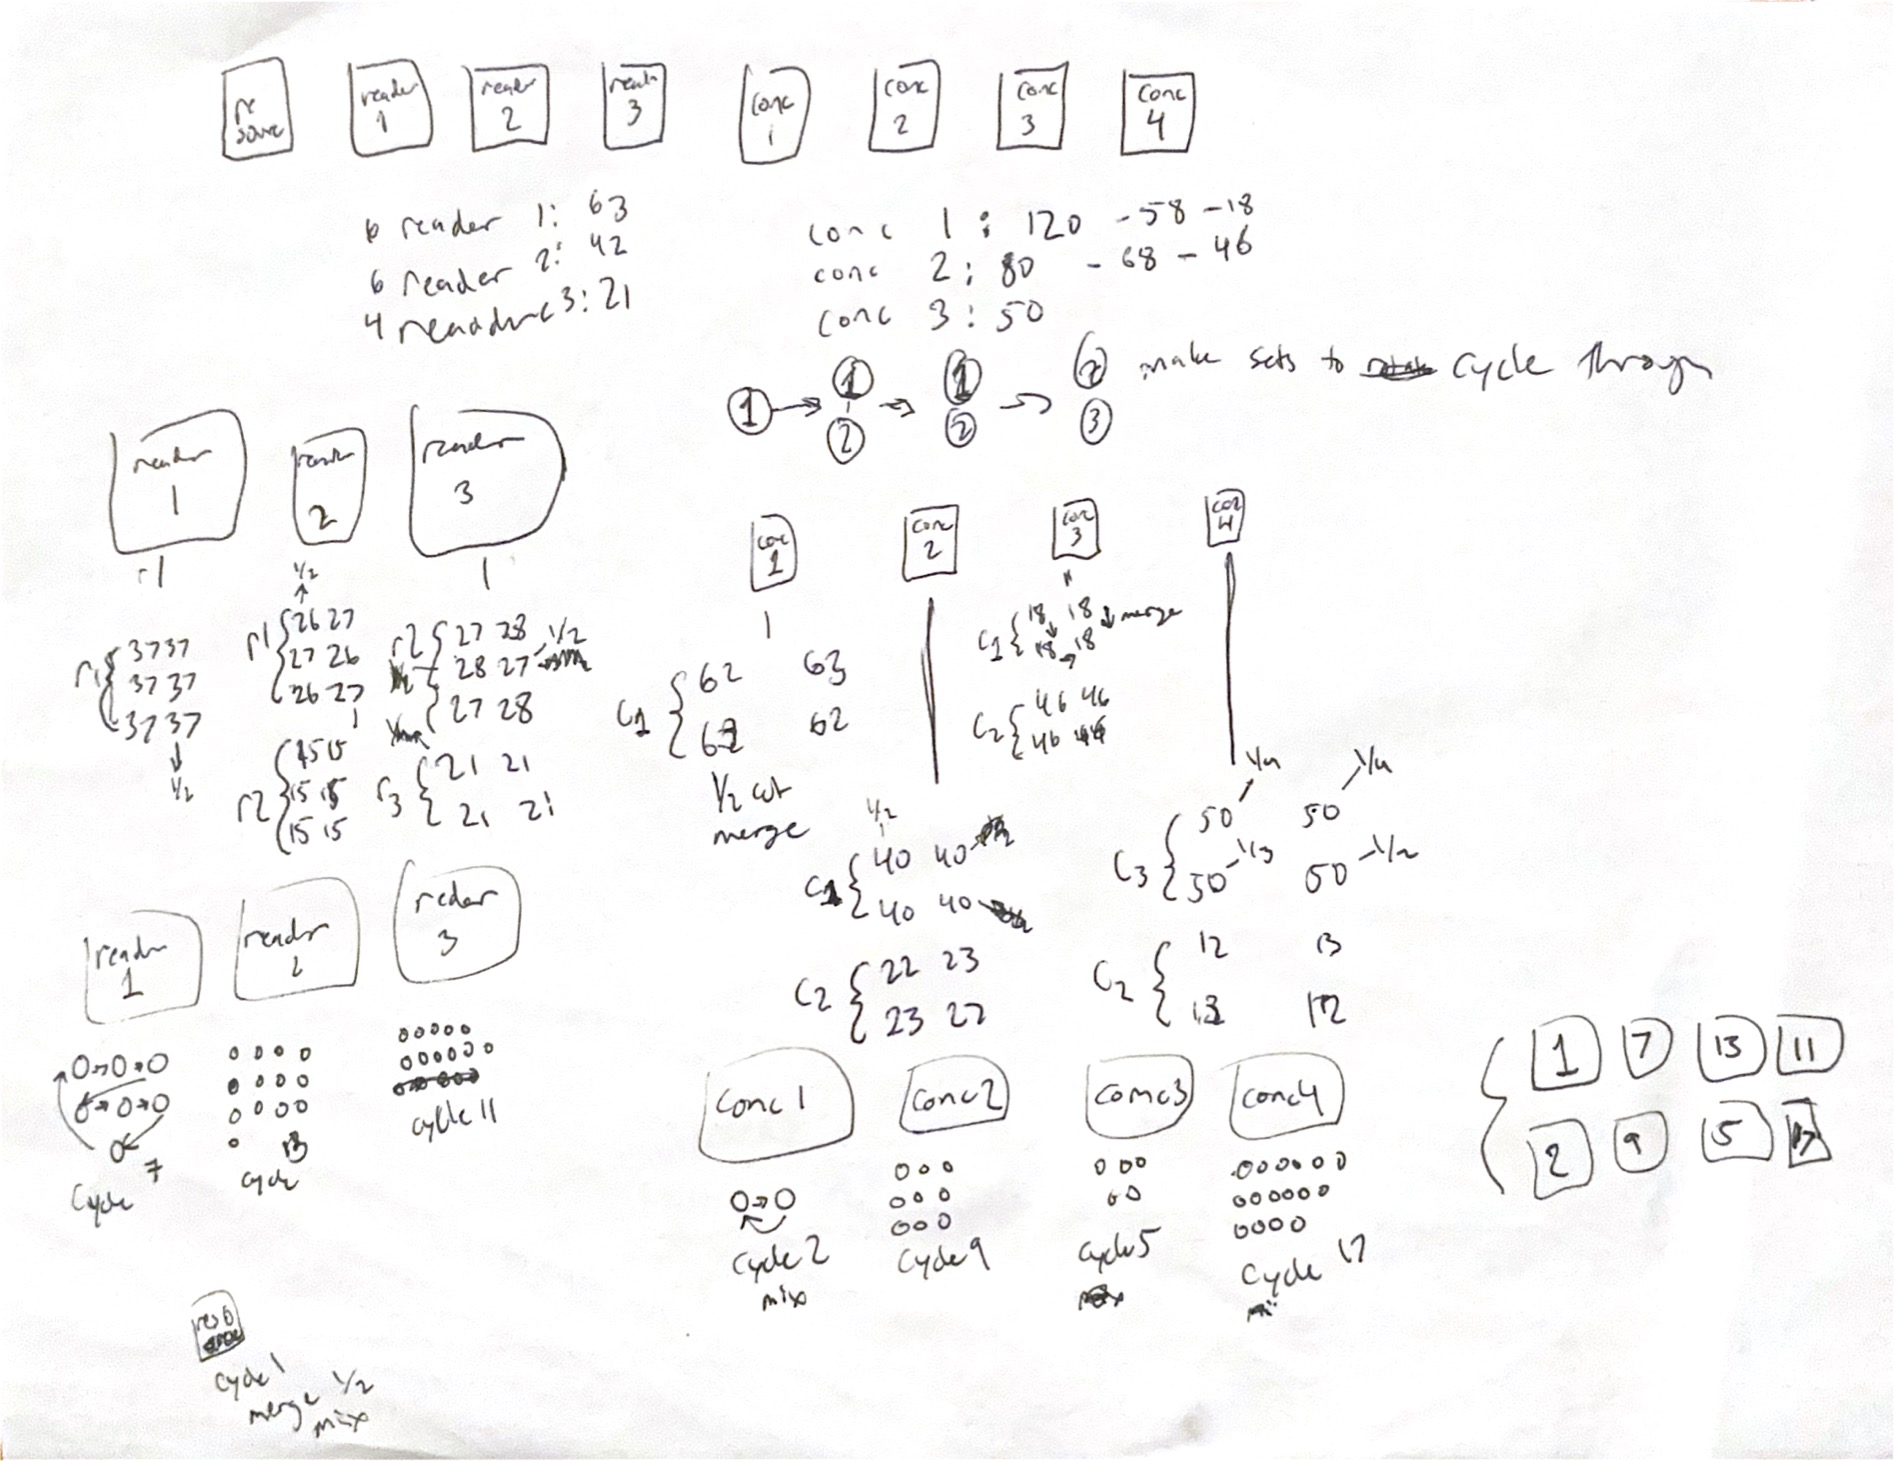 re
reader
1
reader
2
3
conc
1
conc
2
conc
3
conc
4
6 reader 1: 63
6 reader 2: 42
4 3: 21
conc 1: 120 -58 -18
conc 2: 80 -68 -46
conc 3: 50
1 → 1 2 → 1 2 → 2 3 make sets to cycle through
reader
1
2
reader
3
r1
1/2
1
r1 { 37 37
37 37
37 37
1/2
r1 { 26 27
27 26
26 27
1
r2 { 15 15
15 15
15 15
r2 { 27 28 1/2
28 27
27 28
r3 { 21 21
21 21
conc
1
1
c1 { 62 63
62 62
1/2 cut
merge
conc
2
1/2
c1 { 40 40
40 40
c2 { 22 23
23 22
3
c1 { 18 18 merge
18 18
c2 { 46 46
46
4
1/4 1/4
c3 { 50 50
50 1/3 50 1/2
c2 { 12 13
12
reader
1
reader
2
3
cycle 7
cycle 13
cycle 11
conc 1
conc 2
conc 3
conc 4
cycle 2
mix
cycle 9
cycle 5
cycle 17
1 7 13 11
2 9 5 17
cycle 1
merge 1/2
mix